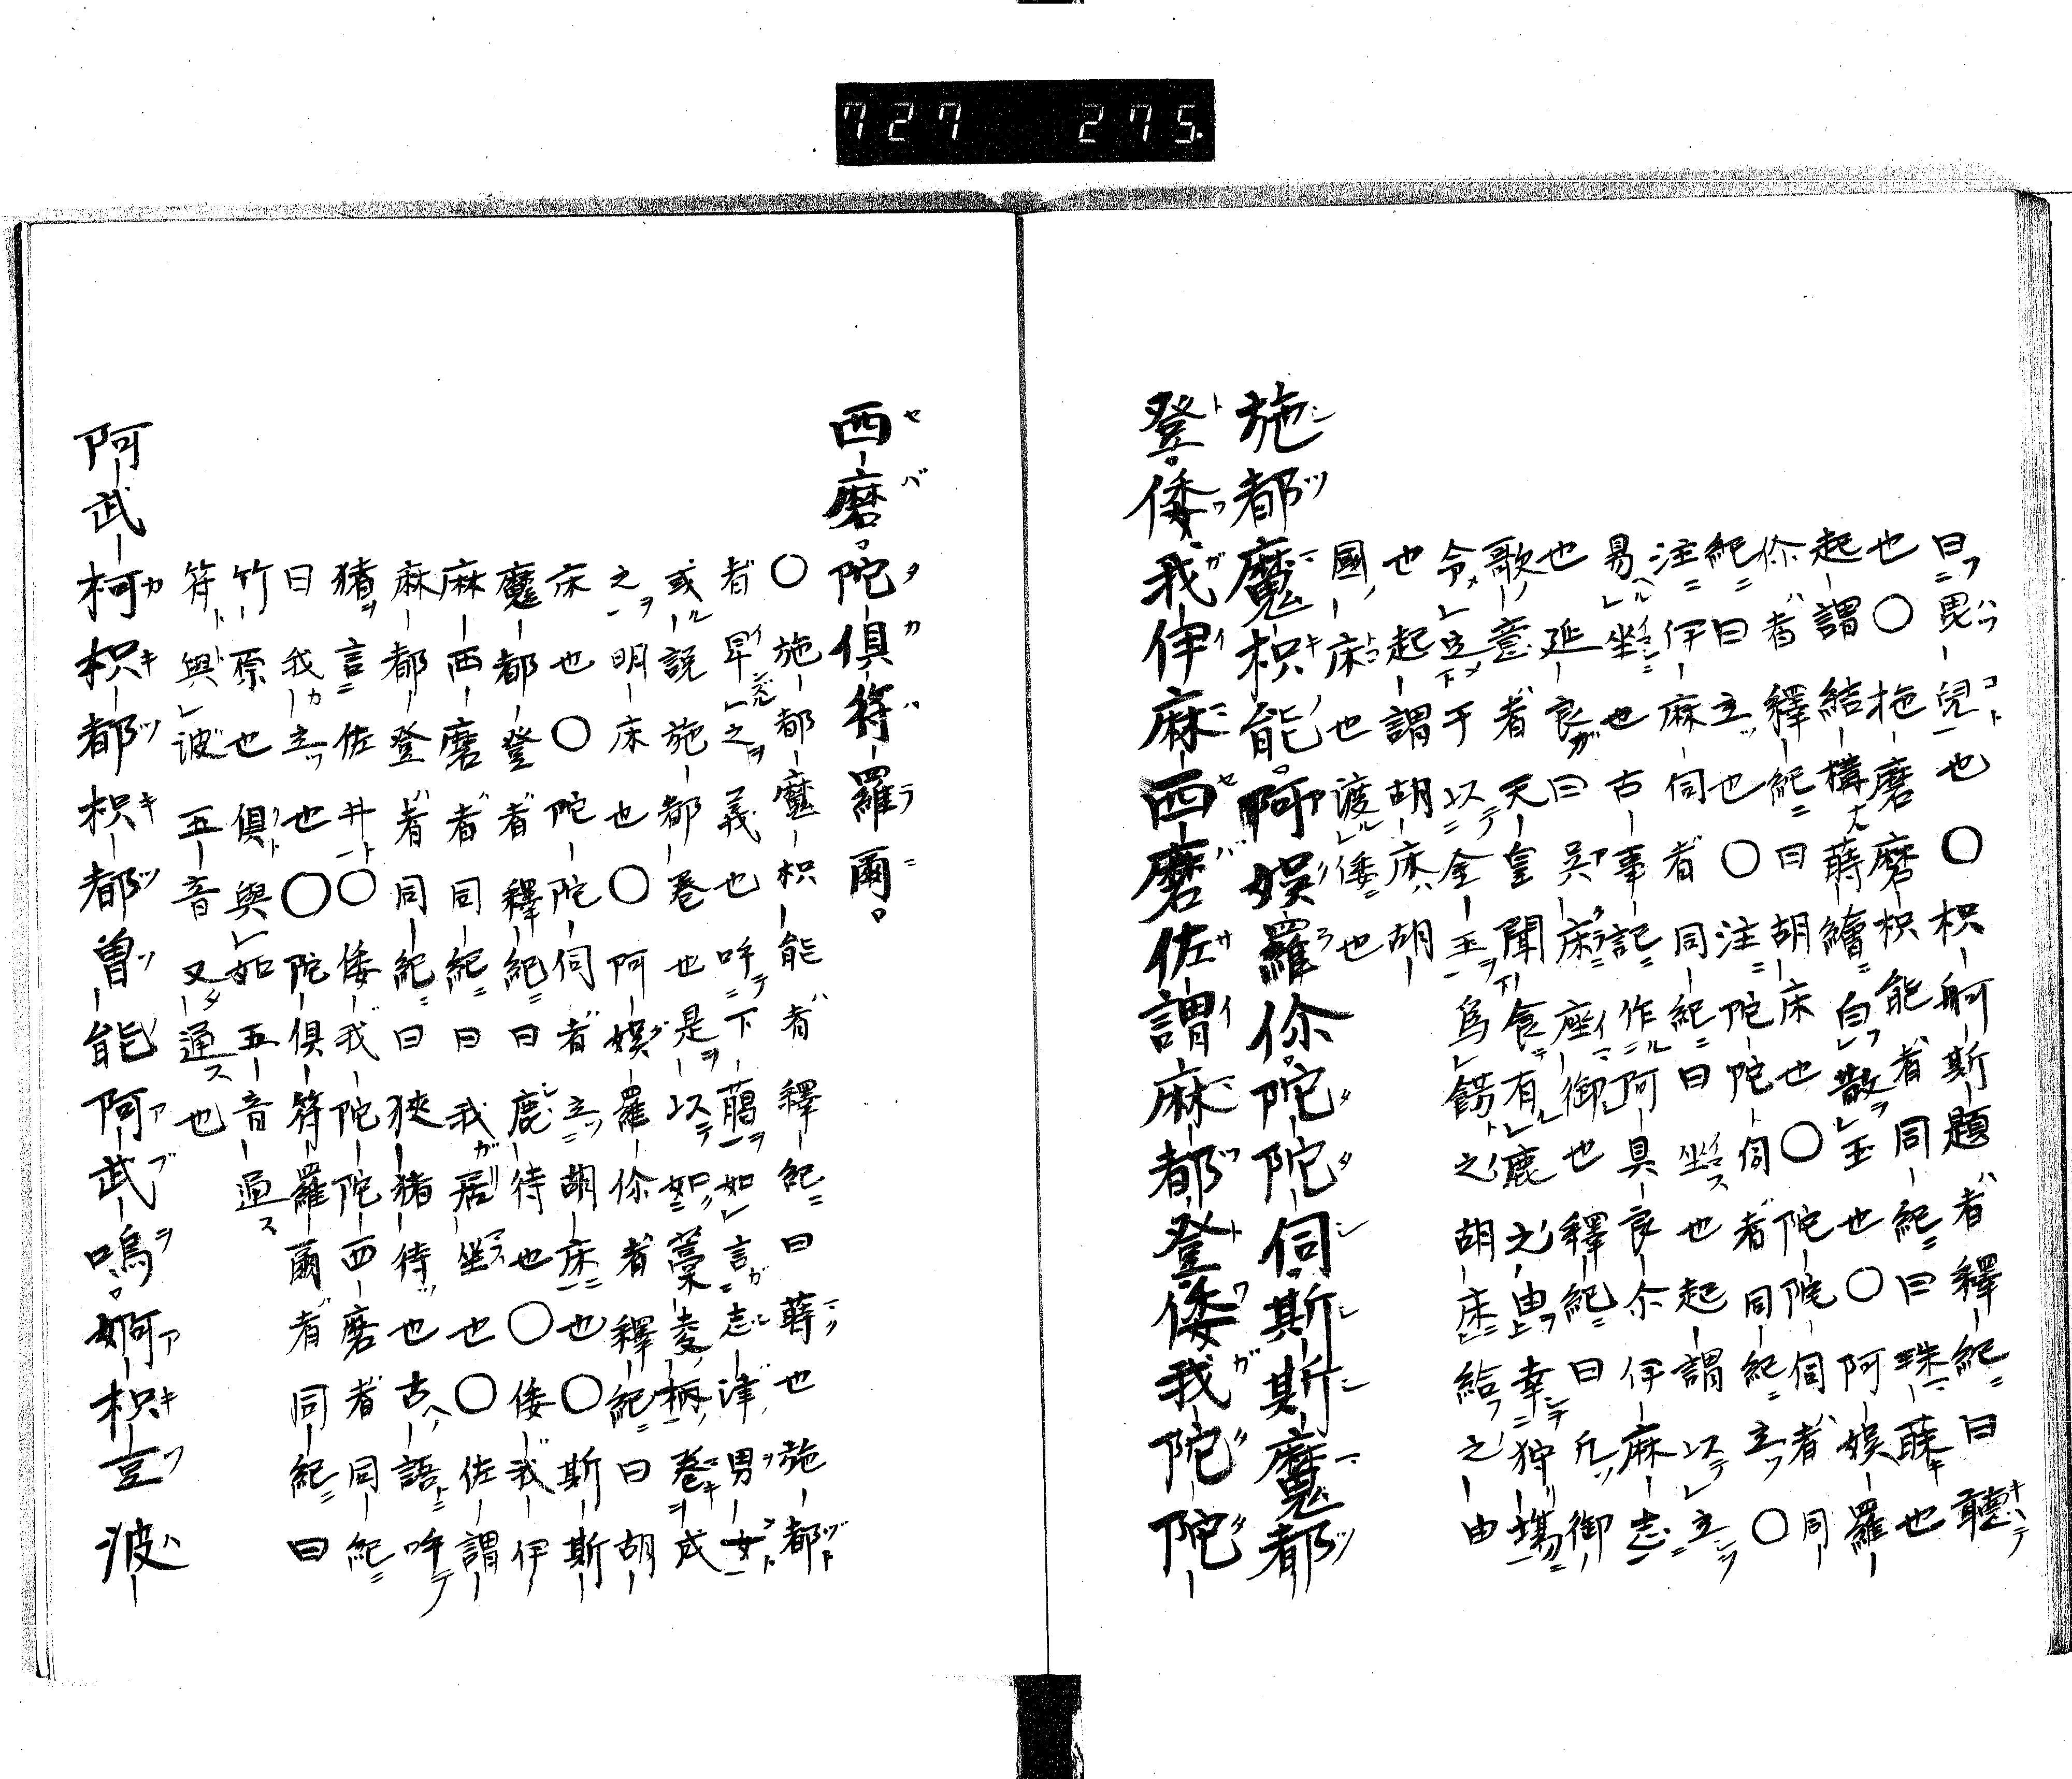 727 275
曰毘兒也〇枳舸斯題者釋紀曰聽
也〇拖磨磨枳能者同紀曰珠藤也
起謂結構蒋繪自散玉也〇阿娯羅
伱者釋紀曰胡床也〇陀陀伺者同
紀曰立也〇注陀陀伺者同紀立〇
注伊麻伺者同紀曰坐也起謂以立
易坐也古事記作阿具良尓伊麻志
也延良曰吳床座御也釋紀曰凡御
歌意者天皇聞食有鹿之由幸狩場
令立于以金玉爲餝之胡床給之由
也起謂胡床胡
國床也渡倭也
施都魔枳能阿娯羅伱陀陀伺斯斯魔都
登倭我伊麻西磨佐謂麻都登倭我陀陀
西磨陀俱符羅爾
〇施都魔枳能者釋紀曰蒋也施都
者早之義也呼下﨟如言志津男女
或説施都卷也是以如藁麦柄卷成
之明床也〇阿娯羅伱者釋紀曰胡
床也〇陀陀伺者立胡床也〇斯斯
魔都登者釋紀曰鹿待也〇倭我伊
麻西磨者同紀曰我居坐也〇佐謂
麻都登者同紀曰狹猪待也古語呼
猪言佐井〇倭我陀陀西磨者同紀
曰我立也〇陀俱符羅爾者同紀曰
竹原也俱與如五音通
符與波五音又通也
阿武柯枳都枳都曽能阿武嗚婀枳豆波